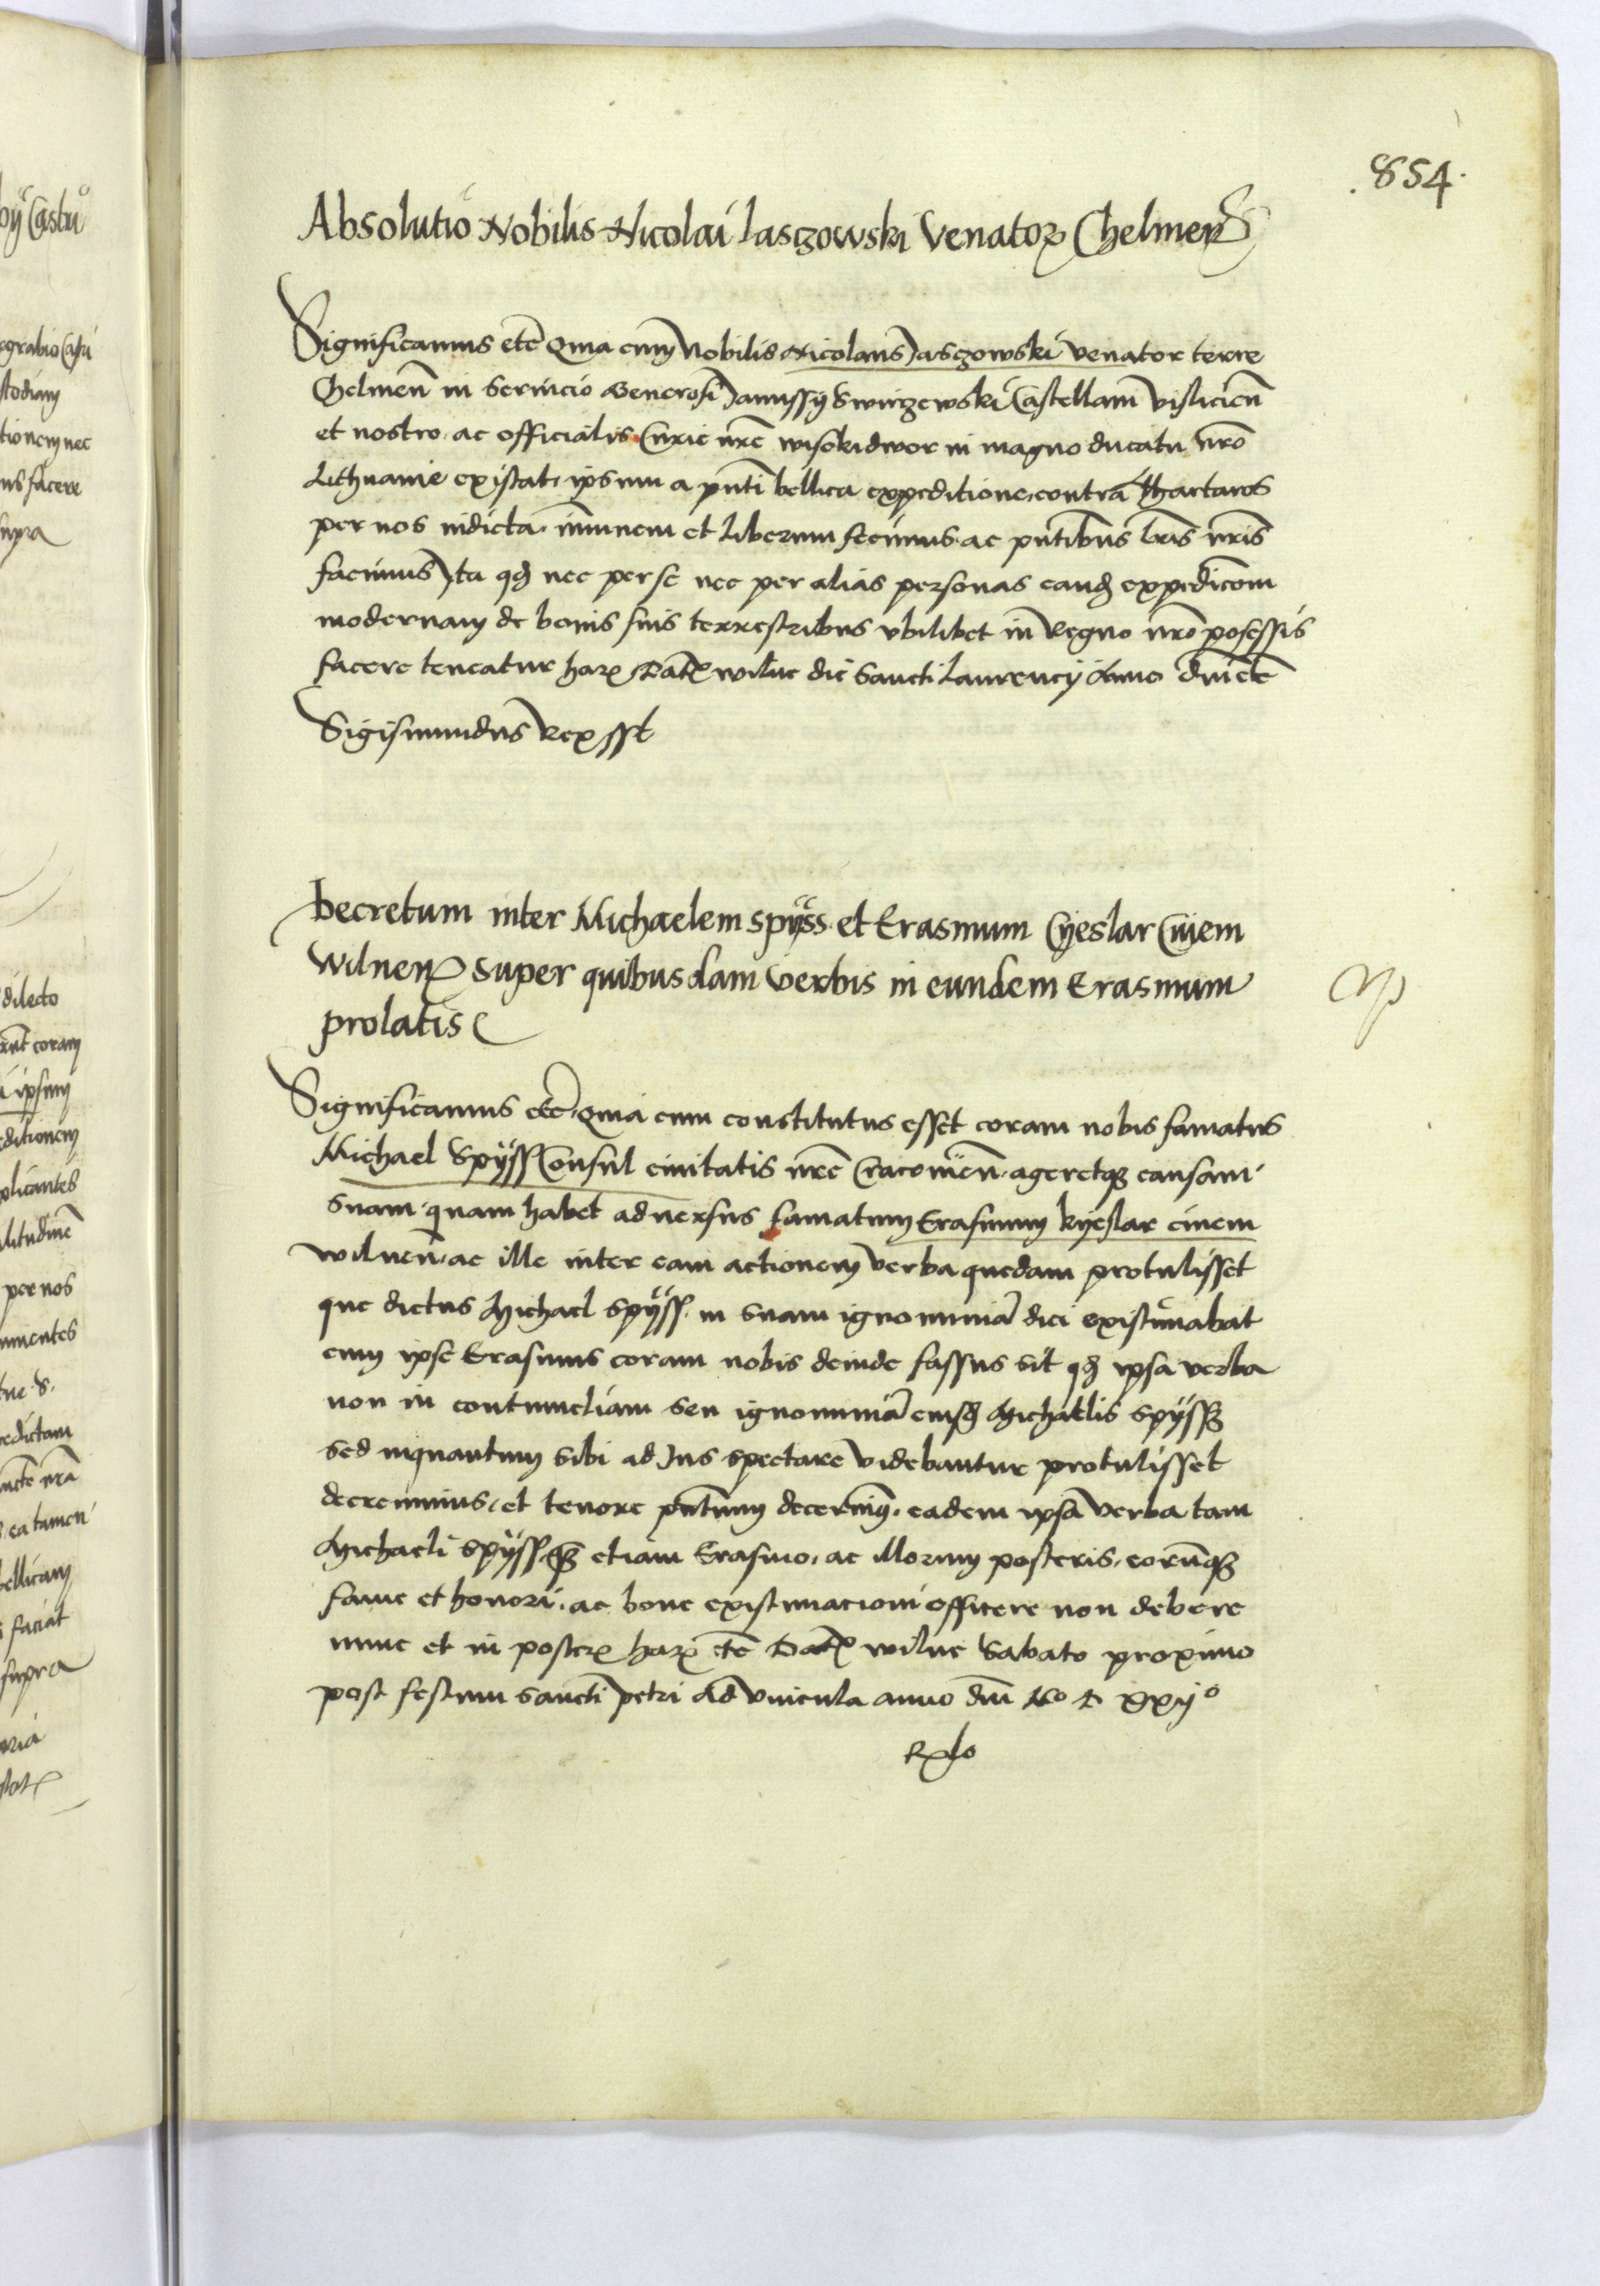 .854.
Absolutio Nobilis Nicolai Jasczowski Venatoꝝ Chelmeñ
Significamus etc̃ Quia cum Nobilis Nicolaus Jasczowski venator terre
Chelmeñ in servicio Generosi Janussij Swirczewski Castellani vislicieñ
et nostro ac officialis Curie nr̃e wisokidwor in magno ducatu nr̃o
Lithuanie existat, ipsum a pñti bellica expeditione contra Thartaros
per nos indicta ĩmunem et liberum fecimus ac pñtibus lr̃is nr̃is
facimus Ita qđ nec per se nec per alias personas eanđ expedicõm
modernam de bonis suis terrestribus vbilibet in Regno nr̃o posessis
facere teneatur haꝝ Datꝝ wilne die Sancti Laurencij Anno dñi etc̃
Sigismundus Rex sst
Decretum inter Michaelem Spyss et Erasmum Cyeslar Ciuem
Wilneñ super quibusdam verbis in eundem Erasmum
prolatis
Significamus etc̃ Quia cum constitutus esset coram nobis famatus
Michael Spyss Consul ciuitatis nr̃e Cracouieñ ageretqꝫ causam
suam quam habet aduersus famatum Erasmum kyeslar ciuem
wilneñ ac ille inter eam actionem verba quedam protulisset
que dictus Michael Spyss in suam ignominiã dici existimabat
cum ipse Erasmus coram nobis deinde fassus sit qđ ipsa verba
non in contumeliam seu ignominiã eiusđ Michaelis Spyss
sed inquantum sibi ad Jus spectare videbantur protulisset
decreuimus et tenore pñtium decernimꝯ eadem ipsa verba tam
Michaeli Spyss qꝫ etiam Erasmo ac illorum posteris eorũqꝫ
fame et honori ac bone existimacioni officere non debere
nunc et in posterꝝ haꝝ etc̃ Datꝝ wilne Sabato proximo
post festum Sancti petri Ad vincula anno dñi Mo D xxijo